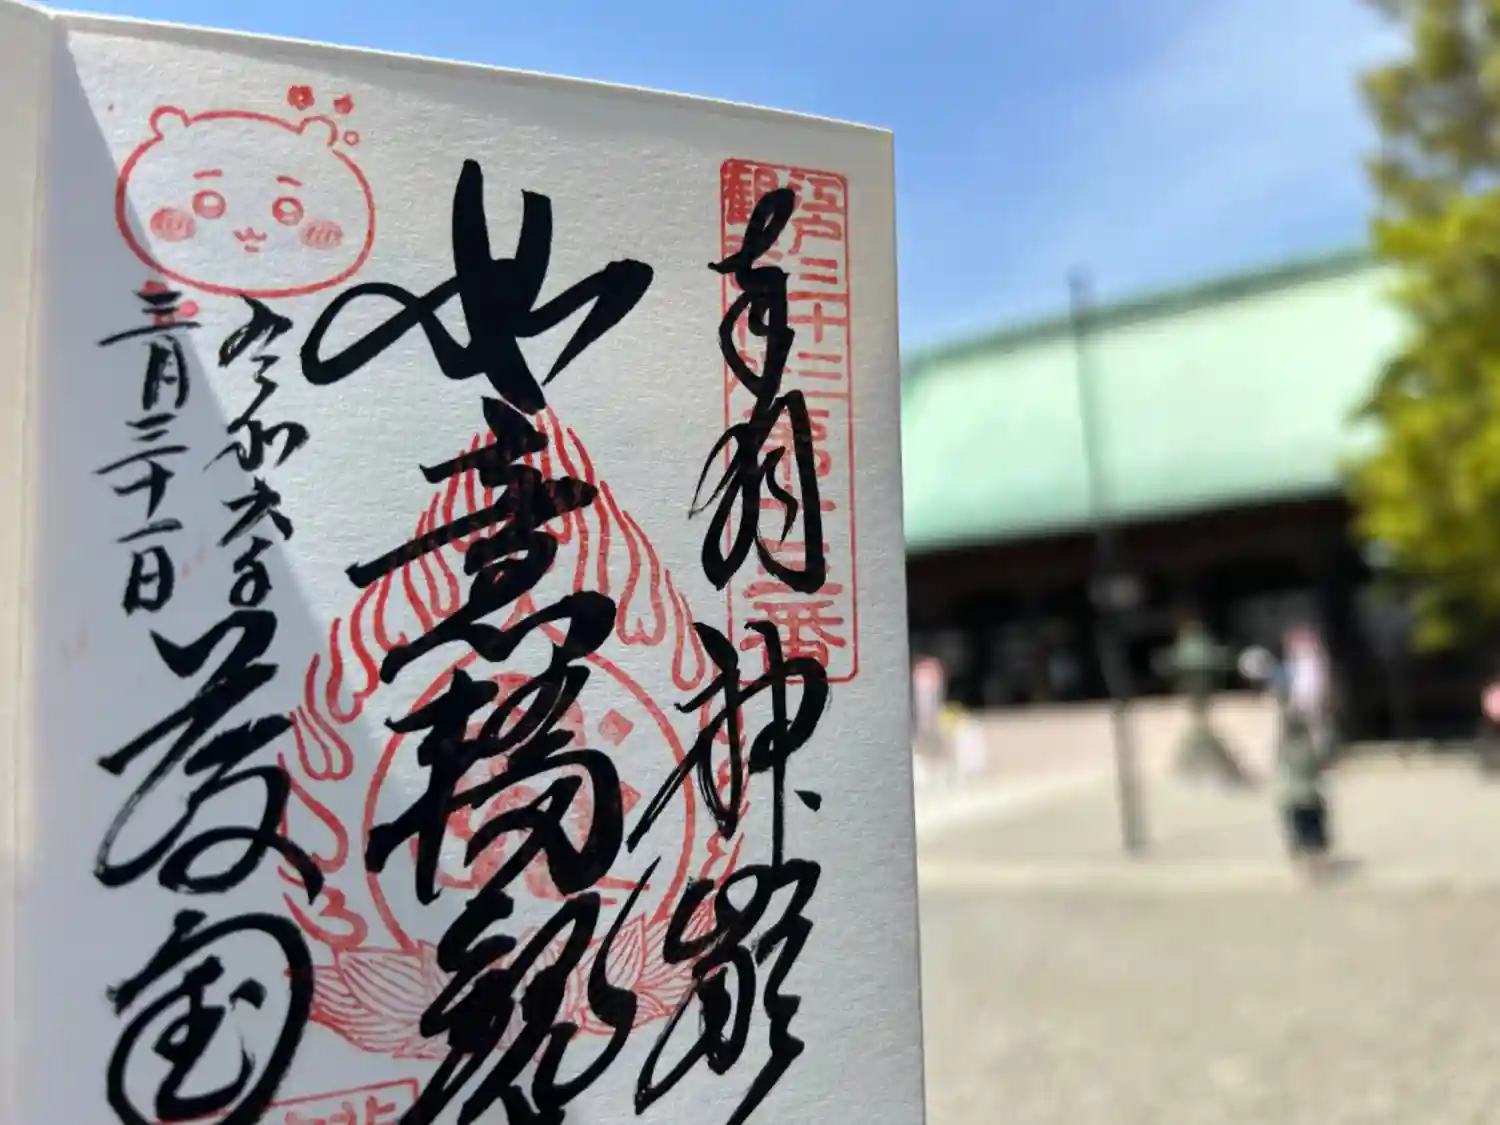 江戸三十三
観音札所
第十三番
奉拝 神齢
如意輪観
令和六年
三月三十一日
護国